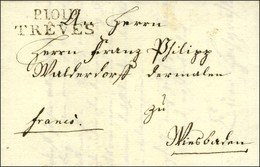 P.101.P.
TREVES
An Herrn
Herrn Franz Philipp
Walderdorff dermalen
zu
franco.
Wiesbaden